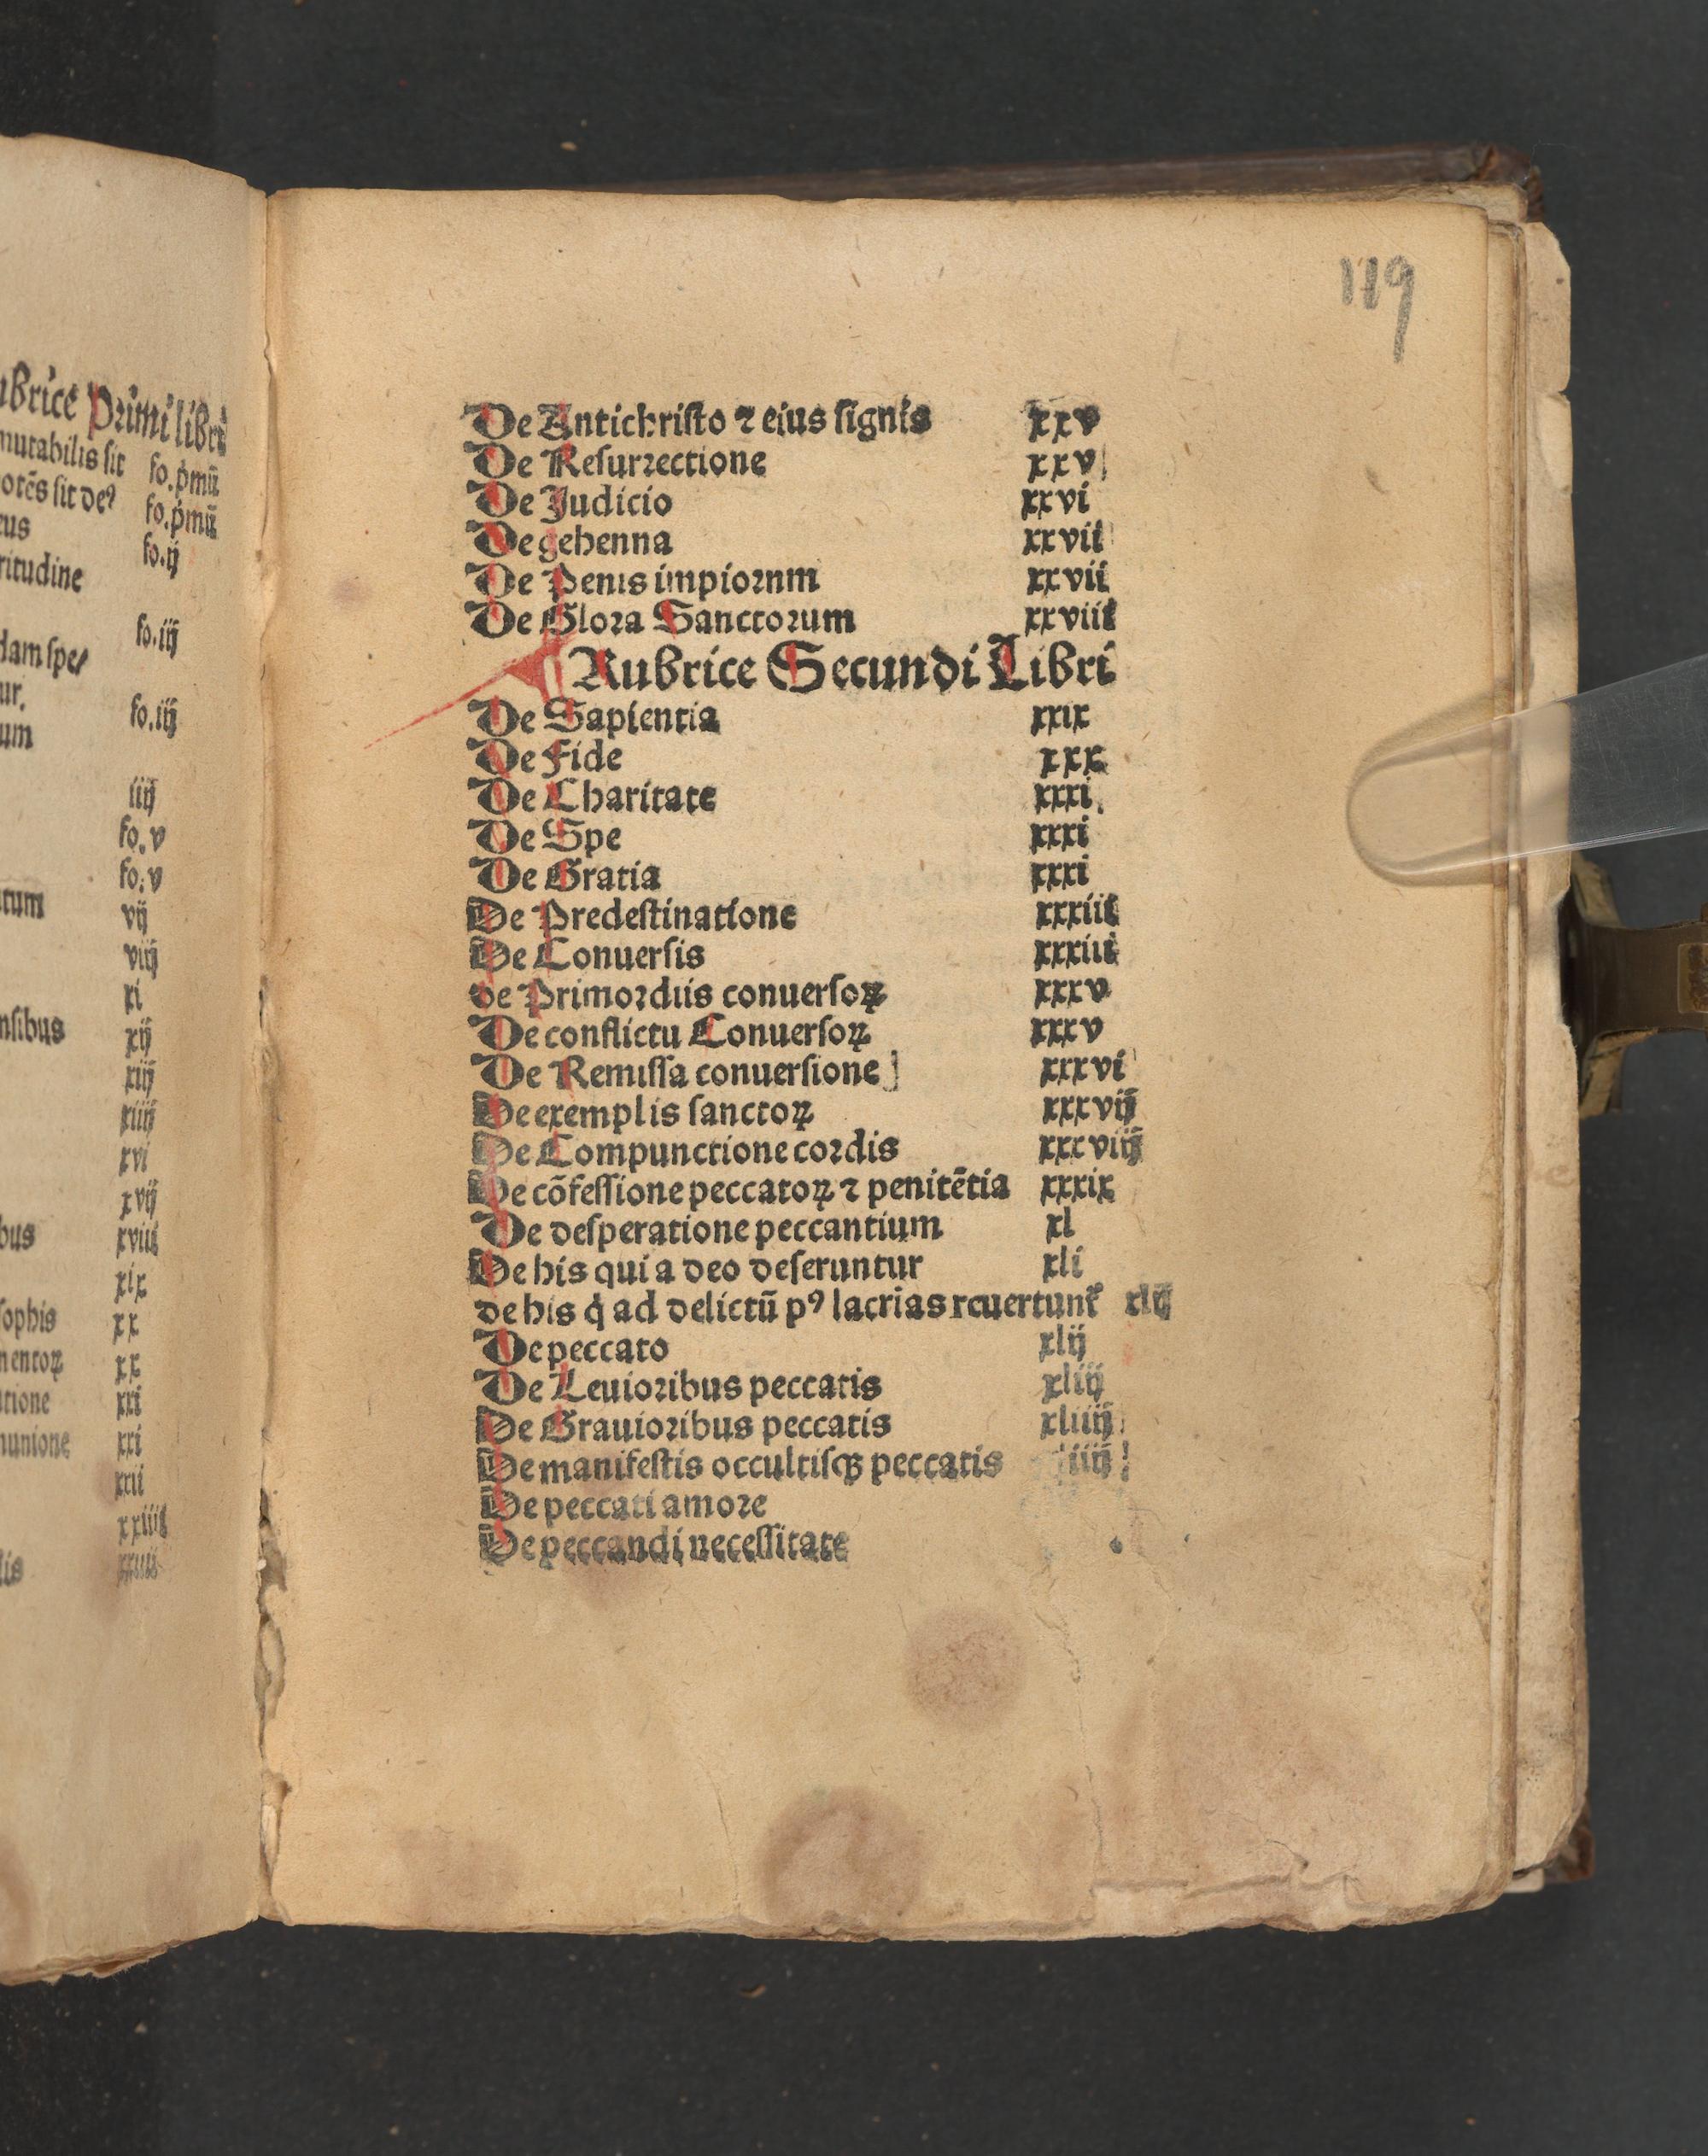 ubrice Primi libri
mutabilis sit fo.pͥmū
otēs sit deꝰ fo.pͥmū
eus fo.ij
ritudine
fo.iij
dam spe/
ur.
um fo.iij
iiij
fo.v
fo.v
tum vij
viij
xi
nsibus xij
xiij
xiiij
xvi
xvij
bus xviii
xix
sophis xx
mentoꝝ xx
tione xxi
munione xxi
xxii
xxiiii
lis
119
De Antichristo ⁊ eius signis xxv
De Resurrectione xxv
De Judicio xxvi
De gehenna xxvii
De Penis impiornm xxvii
De Glora Sanctorum xxviii
Rubrice Secundi Libri
De Sapientia xxix
De Fide xxx
De Charitate xxxi.
De Spe xxxi
De Gratia xxxi
De Predestinatione xxxiii
De Conuersis xxxiii
de Primordiis conuersoꝝ xxxv
De conflictu Conuersoꝝ xxxv
De Remissa conuersione] xxxvi
De exemplis sanctoꝝ xxxvij
De Compunctione cordis xxxviij
De cōfessione peccatoꝝ ⁊ penitētia xxxix
De desperatione peccantium xl
De his qui a deo deseruntur xli
de his q̇ ad delictū pꝰ lacrias rcuertunt᷑ xlij
De peccato xlij
De Leuioribus peccatis xliij
De Grauioribus peccatis xliiij
De manifestis occultisqꝫ peccatis liiij
De peccati amore
De peccandi necessitate